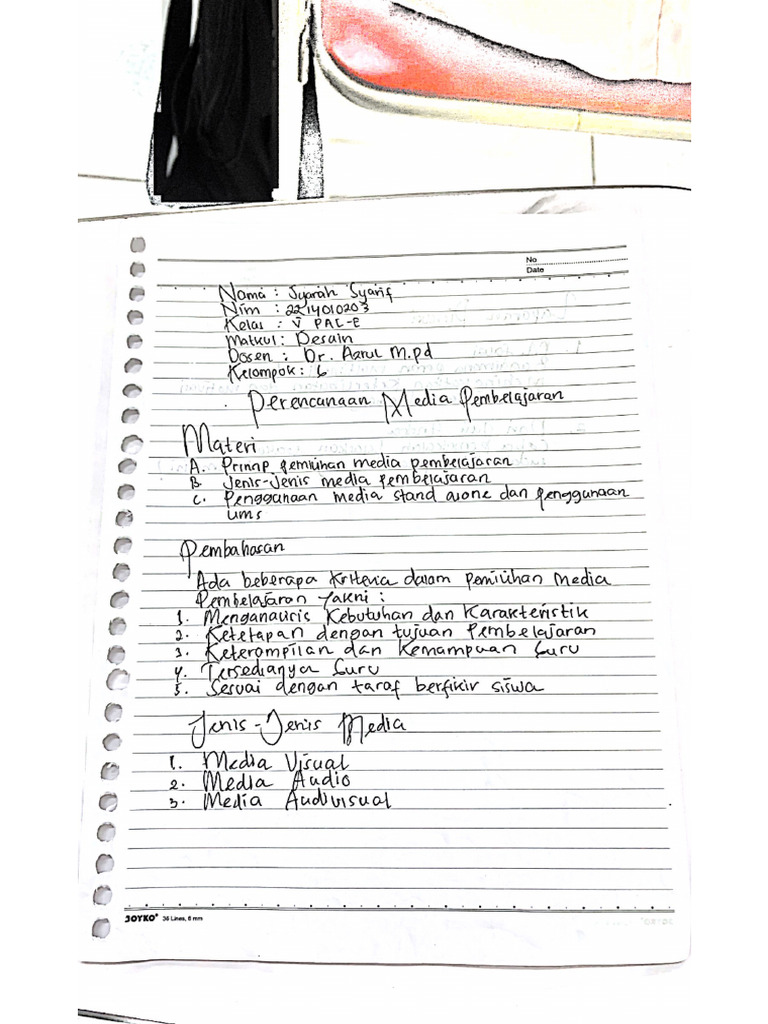 No
Date
Nama : Syarah Syarif
Nim : 2214010203
Kelas : V PAI-E
Matkul : Desain
Dosen : Dr. Asrul M.pd
Kelompok : 6
Perencanaan Media Pembelajaran
Materi
A. Prinsip pemilihan media pembelajaran
B. Jenis-jenis media pembelajaran
C. Penggunaan media stand alone dan penggunaan
LMS
Pembahasan
Ada beberapa kriteria dalam pemilihan Media
Pembelajaran yakni :
1. Menganalisis Kebutuhan dan Karakteristik
2. Ketetapan dengan tujuan Pembelajaran
3. Keterampilan dan Kemampuan Guru
4. Tersedianya Guru
5. Sesuai dengan taraf berfikir siswa
Jenis-Jenis Media
1. Media Visual
2. Media Audio
3. Media Audivisual
JOYKO® 36 Lines, 6 mm